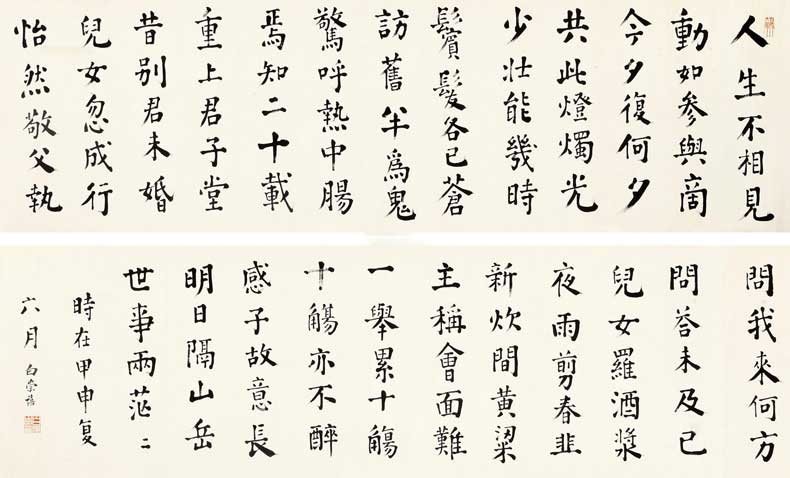 人生不相見
動如參與商
今夕復何夕
共此燈燭光
少壯能幾時
鬢髮各已蒼
訪舊半爲鬼
驚呼熱中腸
焉知二十載
重上君子堂
昔别君未婚
兒女忽成行
怡然敬父執
問我來何方
問荅未及已
兒女羅酒漿
夜雨剪春韭
新炊間黄粱
主稱會面難
一舉累十觴
十觴亦不醉
感子故意長
明日隔山岳
世事兩茫二
時在甲申夏
六月 白崇禧